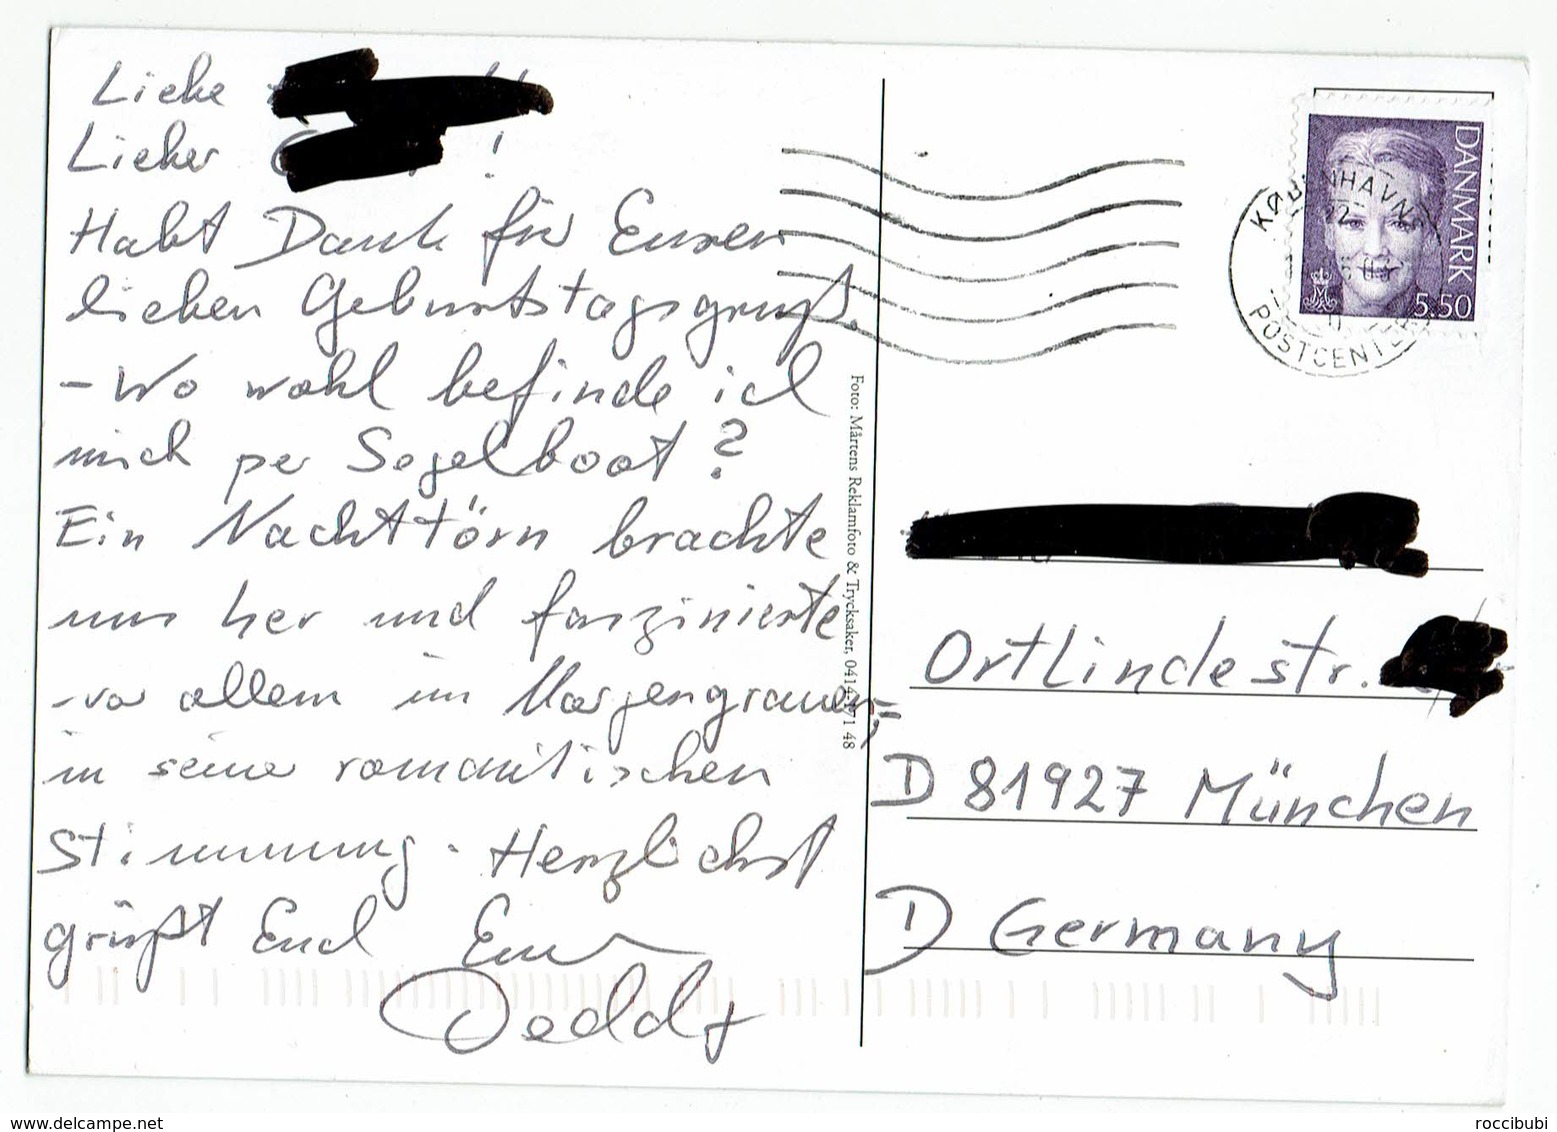 Liebe
Lieber !
Habt Dank für Euren
lieben Geburtstagsgruß.
- Wo wohl befinde ich
mich per Segelboot?
Ein Nachttörn brachte
uns her und faszinierte
vor allem im Morgengrauen,
in seine romantischen
Stimmung. Herzlichst
grüßt Euch Euer
Foto: Mårtens Reklamfoto & Trycksaker, 0414-171 48
DANMARK
5.50
KØBENHAVNS
POSTCENTER
Ortlindestr.
D 81927 München
D Germany
www.delcampe.net
roccibubi